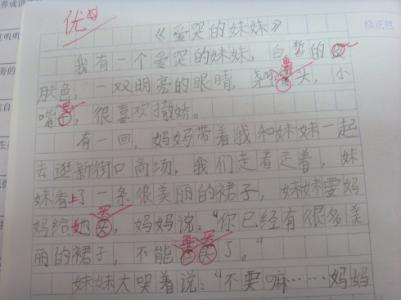 优
《爱哭的妹妹》
我有一个爱哭的妹妹，白皙的
肤色，一双明亮的眼睛，头，小
嘴巴，很喜欢撒娇。
有一回，妈妈带着我和妹妹一起
去逛新街口商场，我们走着走着，妹
妹看上了一条很美丽的裙子，妹妹要妈
妈给她买，妈妈说：“你已经有很多美
丽的裙子，不能再买了。”
妹妹大哭着说：“不要嘛……妈妈